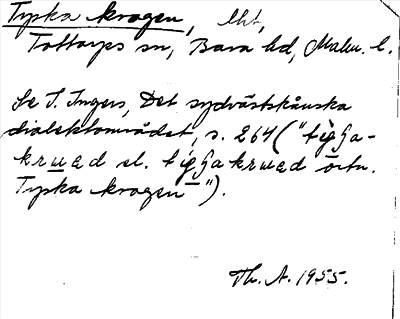 Tyska kragen, lht,
Tottarps sn, Bara hd, Malm. l.
Se I. Ingers, Det sydvästskånska
dialektområdet, s. 264 ("
kruad el. ortn.
Tyska kragen").
Th. A. 1955.